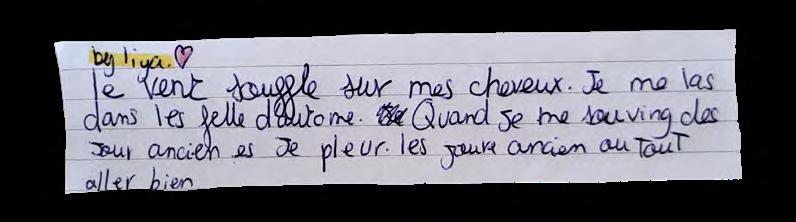 by liya.
le vent souffle sur mes cheveux. Je me las
dans les felle d'autome. Quand je me souving des
Jour ancien es Je pleur. les joure ancien ou Tout
aller bien